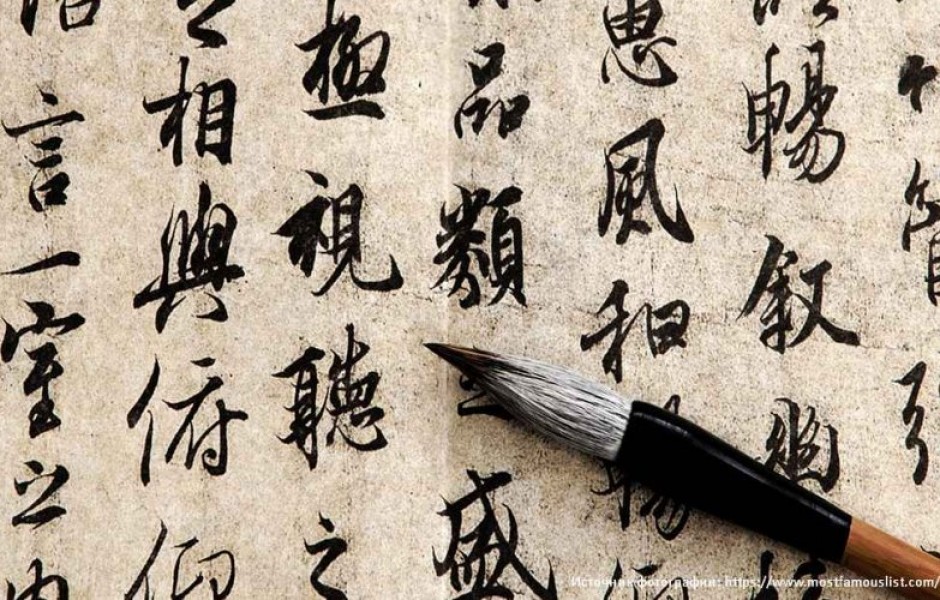 管弦
暢叙幽
惠風和暢
品類之盛
極視聽之
之相與俯仰
言一室之内
Источник фотографии: https://www.mostfamouslist.com/